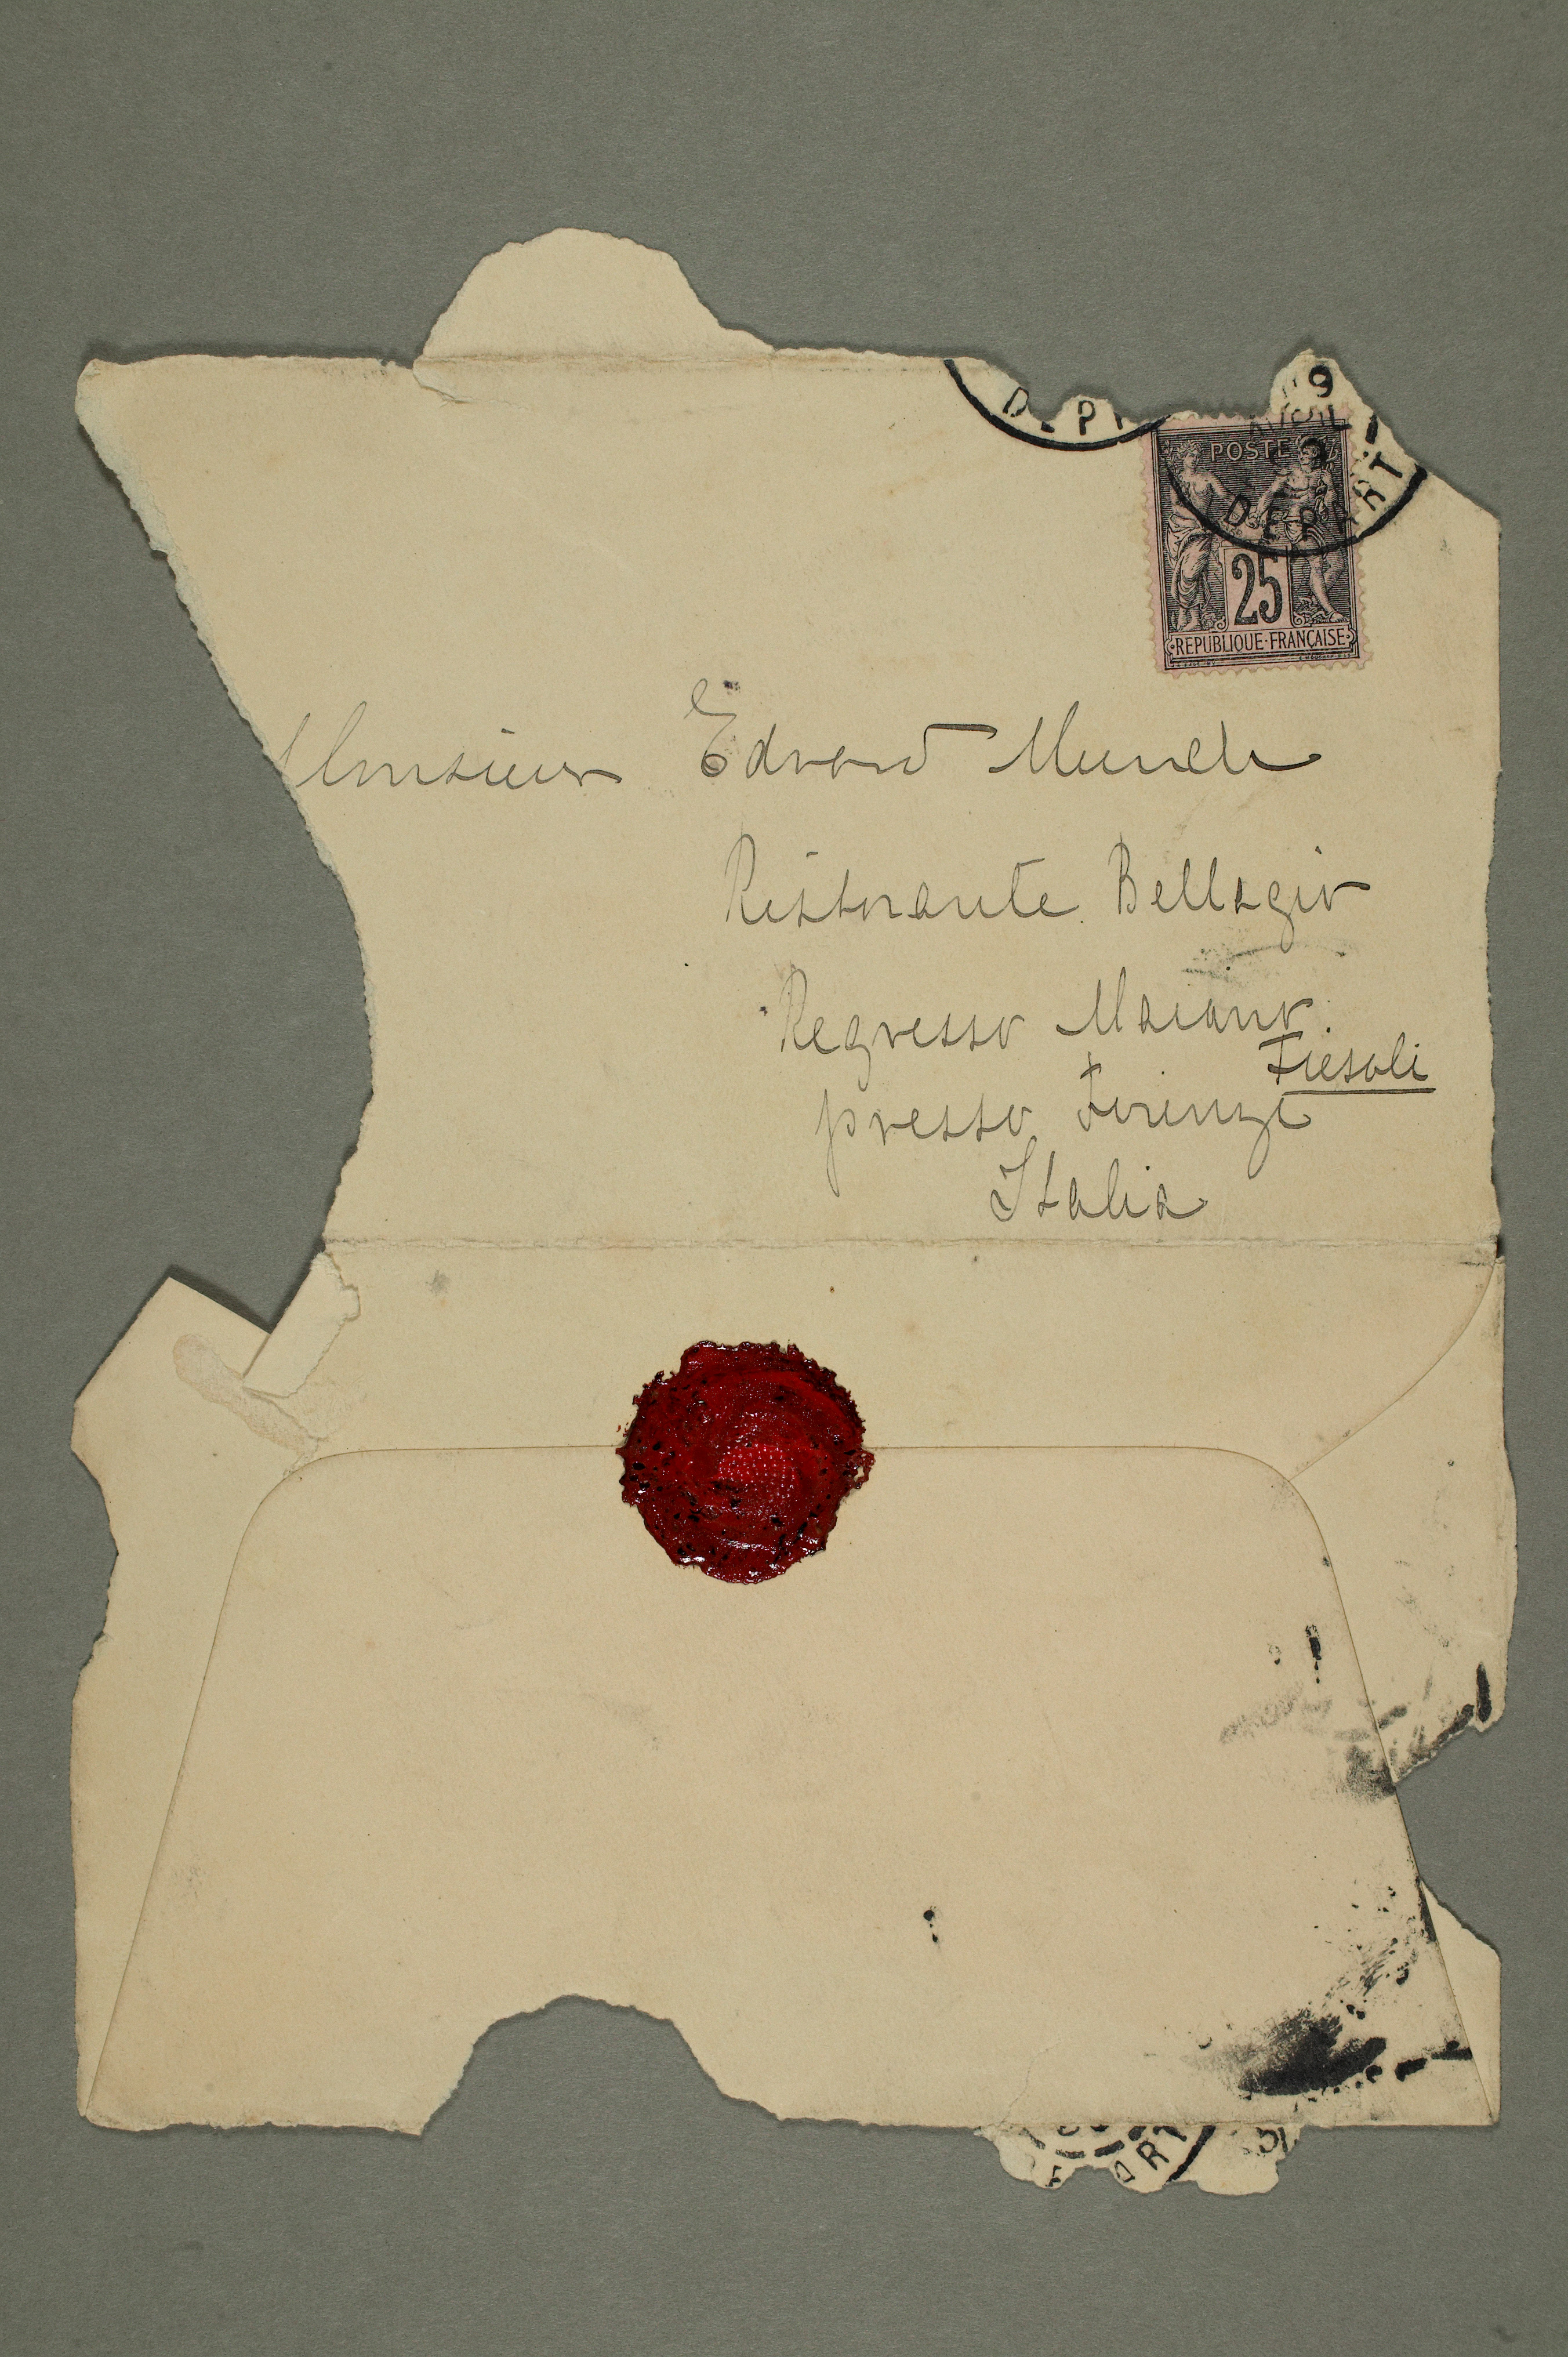 9
AVRIL
DEPART
POSTE
25
REPUBLIQUE·FRANÇAISE
Monsieur Edvard Munch
Ristorante Bellagio
Regresso Maiano.
Fiesoli
presso Firenze
Italia